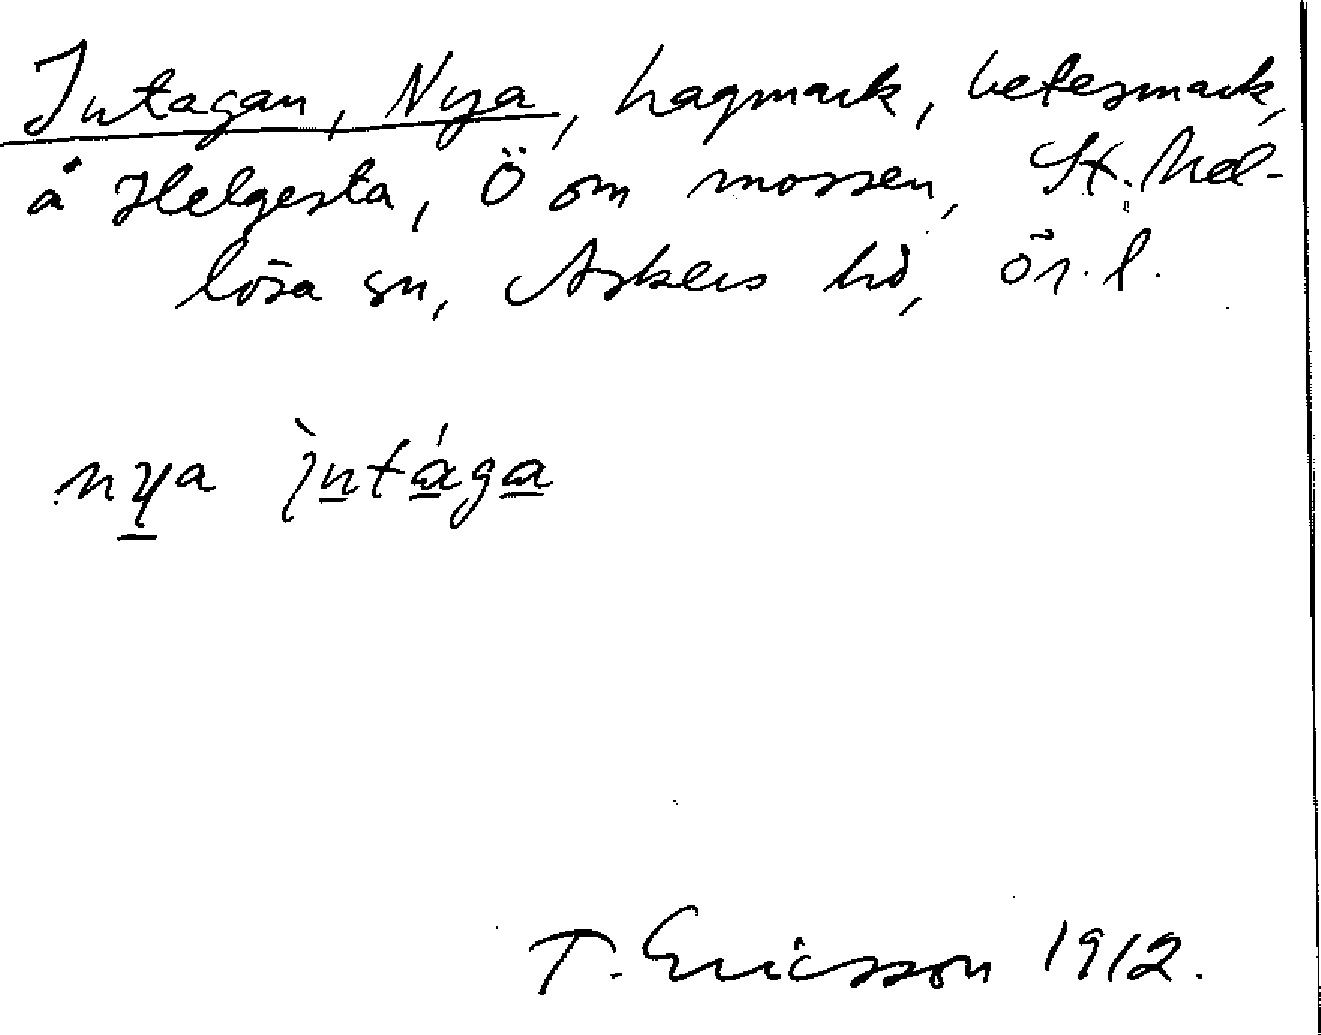 Intagan, Nya, hagmark, betesmark,
å Helgesta, Ö om mossen, St. Mel-
lösa sn, Askers hd, Ör. l.
nya ìntága
T. Ericsson 1912.